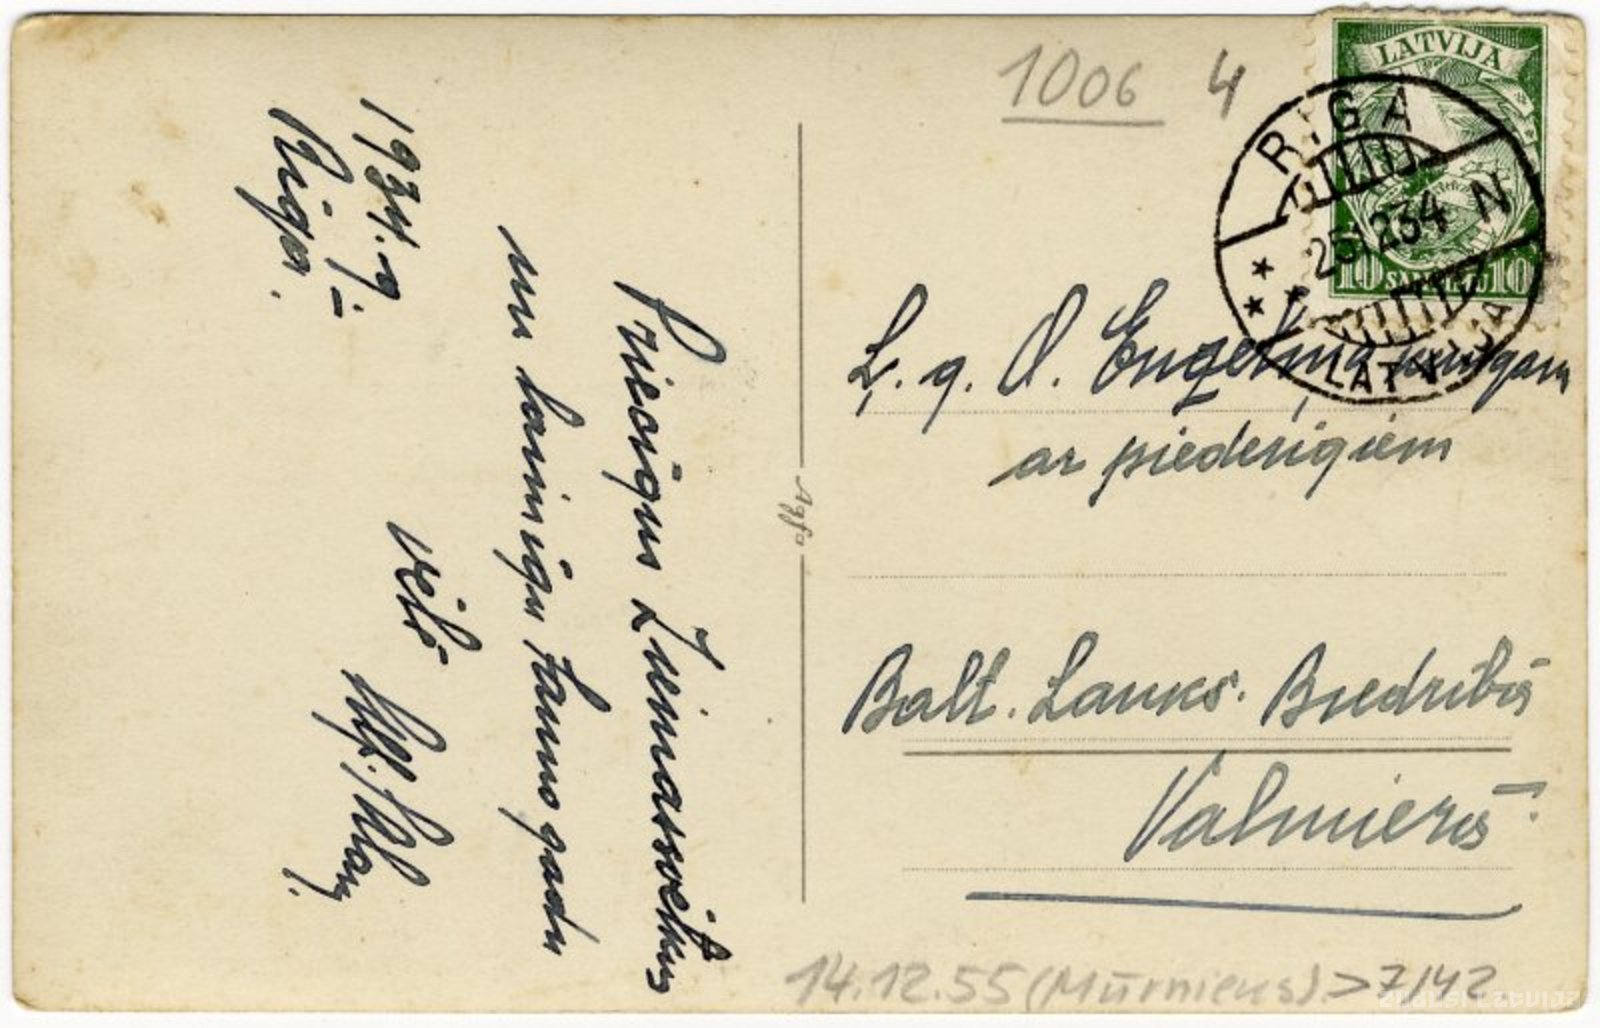 1006 4
LATVIJA
10 SANTIMU 10
RIGA
25 12 34 N
LATVIJA
Ļ. g. O. Engeliņa kungam
ar piederīgiem
Balt. Lauks. Biedrībā
Valmierā.
Agfa
Priecīgus Ziemassvētkus
un laimīgu Jauno gadu
vēl
1934. g.
Rīgā.
14.12.55 (Mūrnieks).>7142